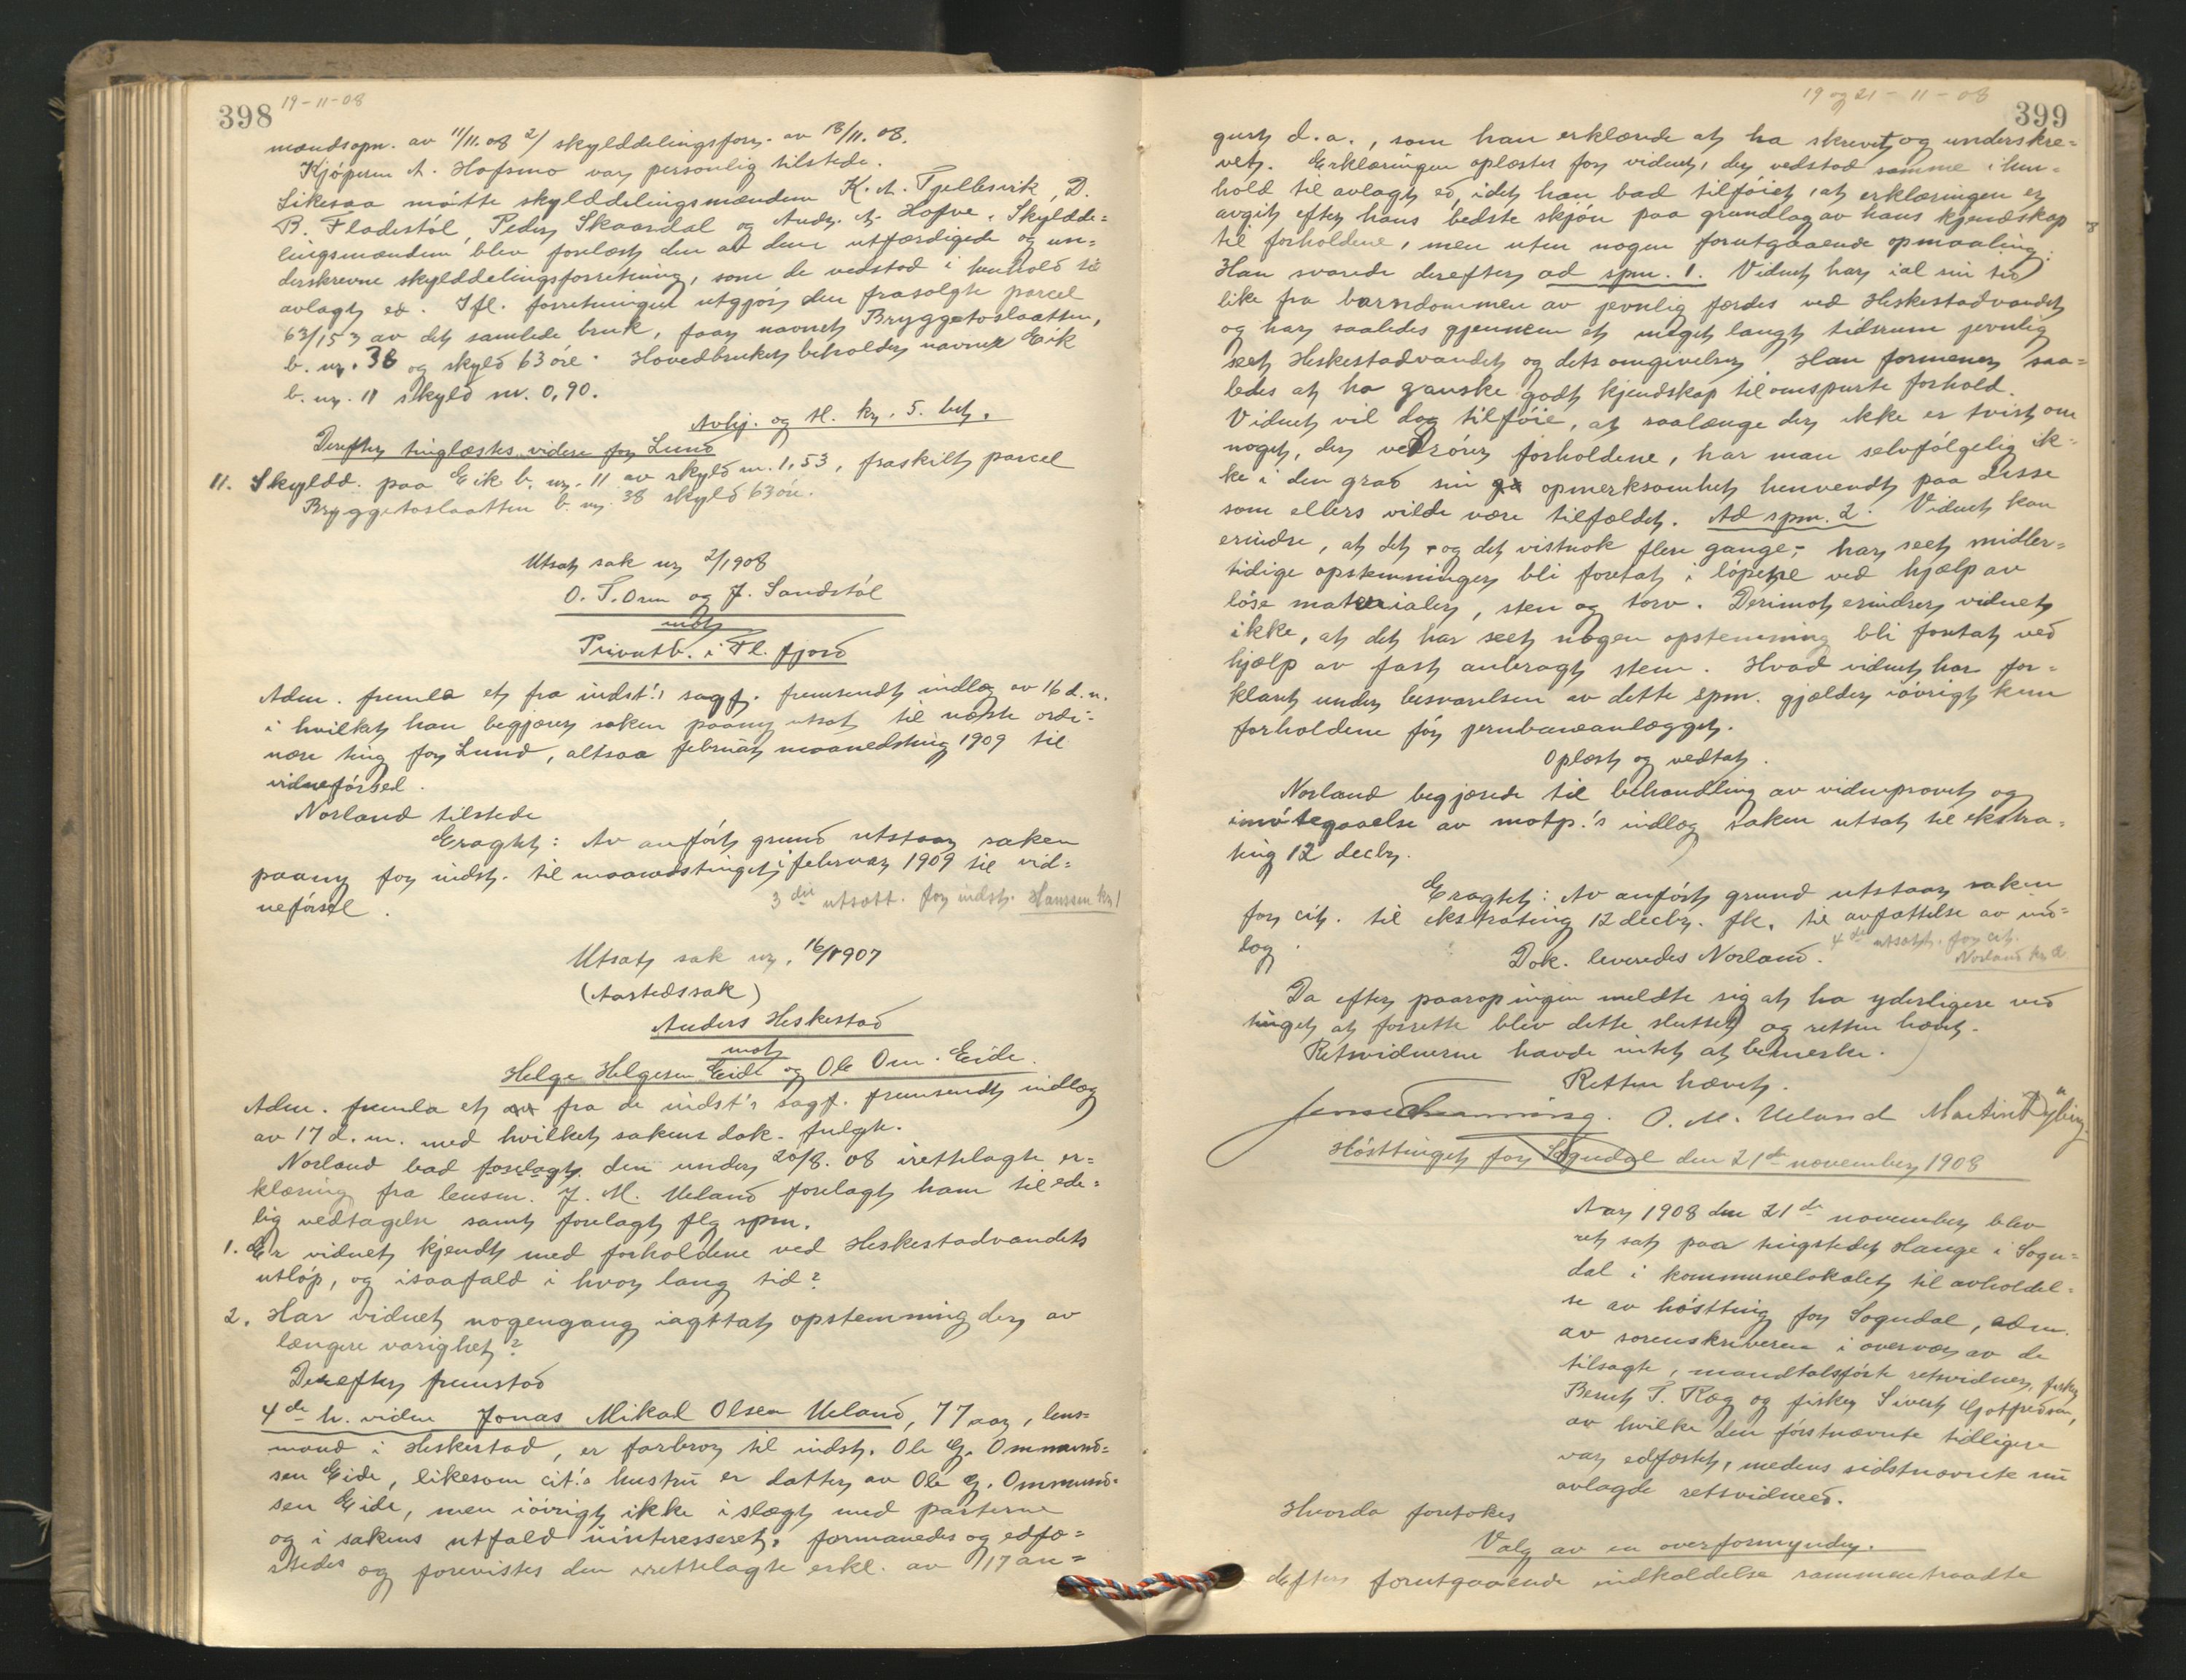 398 19-11-08
mandsopn. av 11/11.08 2/ skylddelingsforr. av 13/11.08.
Kjøperen A. Hofsmo var personlig tilstede.
Likesaa møtte skylddelingsmændene K. A. Tjellesvik, D.
B. Fladestøl, Peder Skaardal og Andr. A. Hofve. Skyldde-
lingsmændene blev forelæst den av dem utfærdigede og un-
derskrevne skylddelingsforretning, som de vedstod i henhold til
avlagt ed. Ifl. forretningen utgjør den frasolgte parcel
63/153 av det samlede bruk, faar navnet Bryggetoslaatten,
b. nr. 38 og skyld 63 øre. Hovedbruket beholder navnet Eik
b. nr. 11 skyld m. 0,90.
Avhj. og sl. kr. 5. bet.
Derefter tinglæstes videre for Lund
11. Skyldd. paa Eik b. nr. 11 av skyld m. 1,53, fraskilt parcel
Bryggetoslaatten b. nr. 38 skyld 63 øre.
Utsat sak nr 2/1908
O. T. Orm og J. Sandstøl
mot
Privatb. i Fl. fjord
Adm. fremla et fra indst.'s sagf. fremsendt indlæg av 16 d. m.
i hvilket han begjærer saken paany utsat til næste ordi-
nære ting for Lund, altsaa februar maanedsting 1909 til
vidneførsel.
Norland tilstede
Eragtet: Av anført grund utstaar saken
paany for indst. til maanedstinget i februar 1909 til vid-
neførsel.
3die utsætt. for indst. Hanssen kr. 1
Utsat sak nr. 16/1907
(Aastedssak)
Anders Heskestad
mot
Helge Helgesen Eide og Ole Om. Eide.
Adm. fremla et fra de indst's sagf. fremsendt indlæg
av 17 d. m. med hvilket sakens dok. fulgte.
Norland bad forelagt den under 20/8. 08 irettelagte er-
klæring fra lensm. J. M. Ueland forelagt ham til ede-
lig vedtagelse samt forelagt flg spm.
1. Er vidnet kjendt med forholdene ved Heskestadvandets
utløp, og isaafald i hvor lang tid?
2. Har vidnet nogengang iagttat opstemning der av
længere varighet?
Derefter fremstod
4de h. vidne Jonas Mikal Olsen Ueland, 77 aar, lens-
mand i Heskestad, er farbror til indst. Ole G. Ommund-
sen Eide, likesom cit.'s hustru er datter av Ole G. Ommund-
sen Eide, men iøvrigt ikke i slægt med parterne
og i sakens utfald uinteresseret, formanedes og edfæ-
stedes og forevistes den irettelagte erkl. av 17 au-
19 og 21-11-08 399
gust d. a., som han erklærede at ha skrevet og underskre-
vet. Erklæringen oplæstes for vidnet, der vedstod samme i hen-
hold til avlagt ed, idet han bad tilføiet, at erklæringen er
avgit efter hans bedste skjøn paa grundlag av hans kjendskap
til forholdene, men uten nogen forutgaaende opmaaling.
Han svarede derefter ad spm. 1. Vidnet har i al sin tid
like fra barndommen av jevnlig færdes ved Heskestadvandet
og har saaledes gjennem et meget langt tidsrum jevnlig
seet Heskestadvandet og dets omgivelser. Han formener saa-
ledes at ha ganske godt kjendskap til omspurte forhold.
Vidnet vil dog tilføie, at saalænge der ikke er tvist om
noget, der vedrører forholdene, har man selvfølgelig ik-
ke i den grad sin opmerksomhet henvendt paa disse
som ellers vilde være tilfældet. Ad spm. 2. Vidnet kan
erindre, at det - og det vistnok flere gange - har seet midler-
tidige opstemninger bli foretat i løpene ved hjælp av
løse materialer, sten og torv. Derimot erindrer vidnet
ikke, at det har seet nogen opstemning bli foretat ved
hjælp av fast anbragt sten. Hvad vidnet har for-
klaret under besvarelsen av dette spm. gjælder iøvrigt kun
forholdene før jernbaneanlægget.
Oplæst og vedtat.
Norland begjærede til behandling av vidneprovet og
imøtegaaelse av motp.'s indlæg saken utsat til ekstra-
ting 12 decbr.
Eragtet: Av anført grund utstaar saken
for cit. til ekstrating 12 decbr. fk. til avfattelse av ind-
læg.
4de utsætt. for cit.
Norland kr. 2
Dok. leveredes Norland.
Da efter paarop ingen meldte sig at ha yderligere ved
tinget at forrette blev dette sluttet og retten hævet.
Retsvidnerne havde intet at bemerke.
Retten hævet.
O. M. Ueland Martin Dybing
Høsttinget for Sogndal den 21de november 1908
Aar 1908 den 21de november blev
ret sat paa tingstedet Hauge i Sogn-
dal i kommunelokalet til avholdel-
se av høstting for Sogndal, adm.
av sorenskriveren i overvær av de
tilsagte, mandtalsførte retsvidner, fisker
Bernt T. Ræg og fisker Sivert Gotfredsen,
av hvilke den førstnævnte tidligere
var edfæstet, medens sidstnævnte nu
avlagde retsvidneed.
Hvorda foretokes
Valg av en overformynder.
Efter forutgaaende indkaldelse sammentraadte